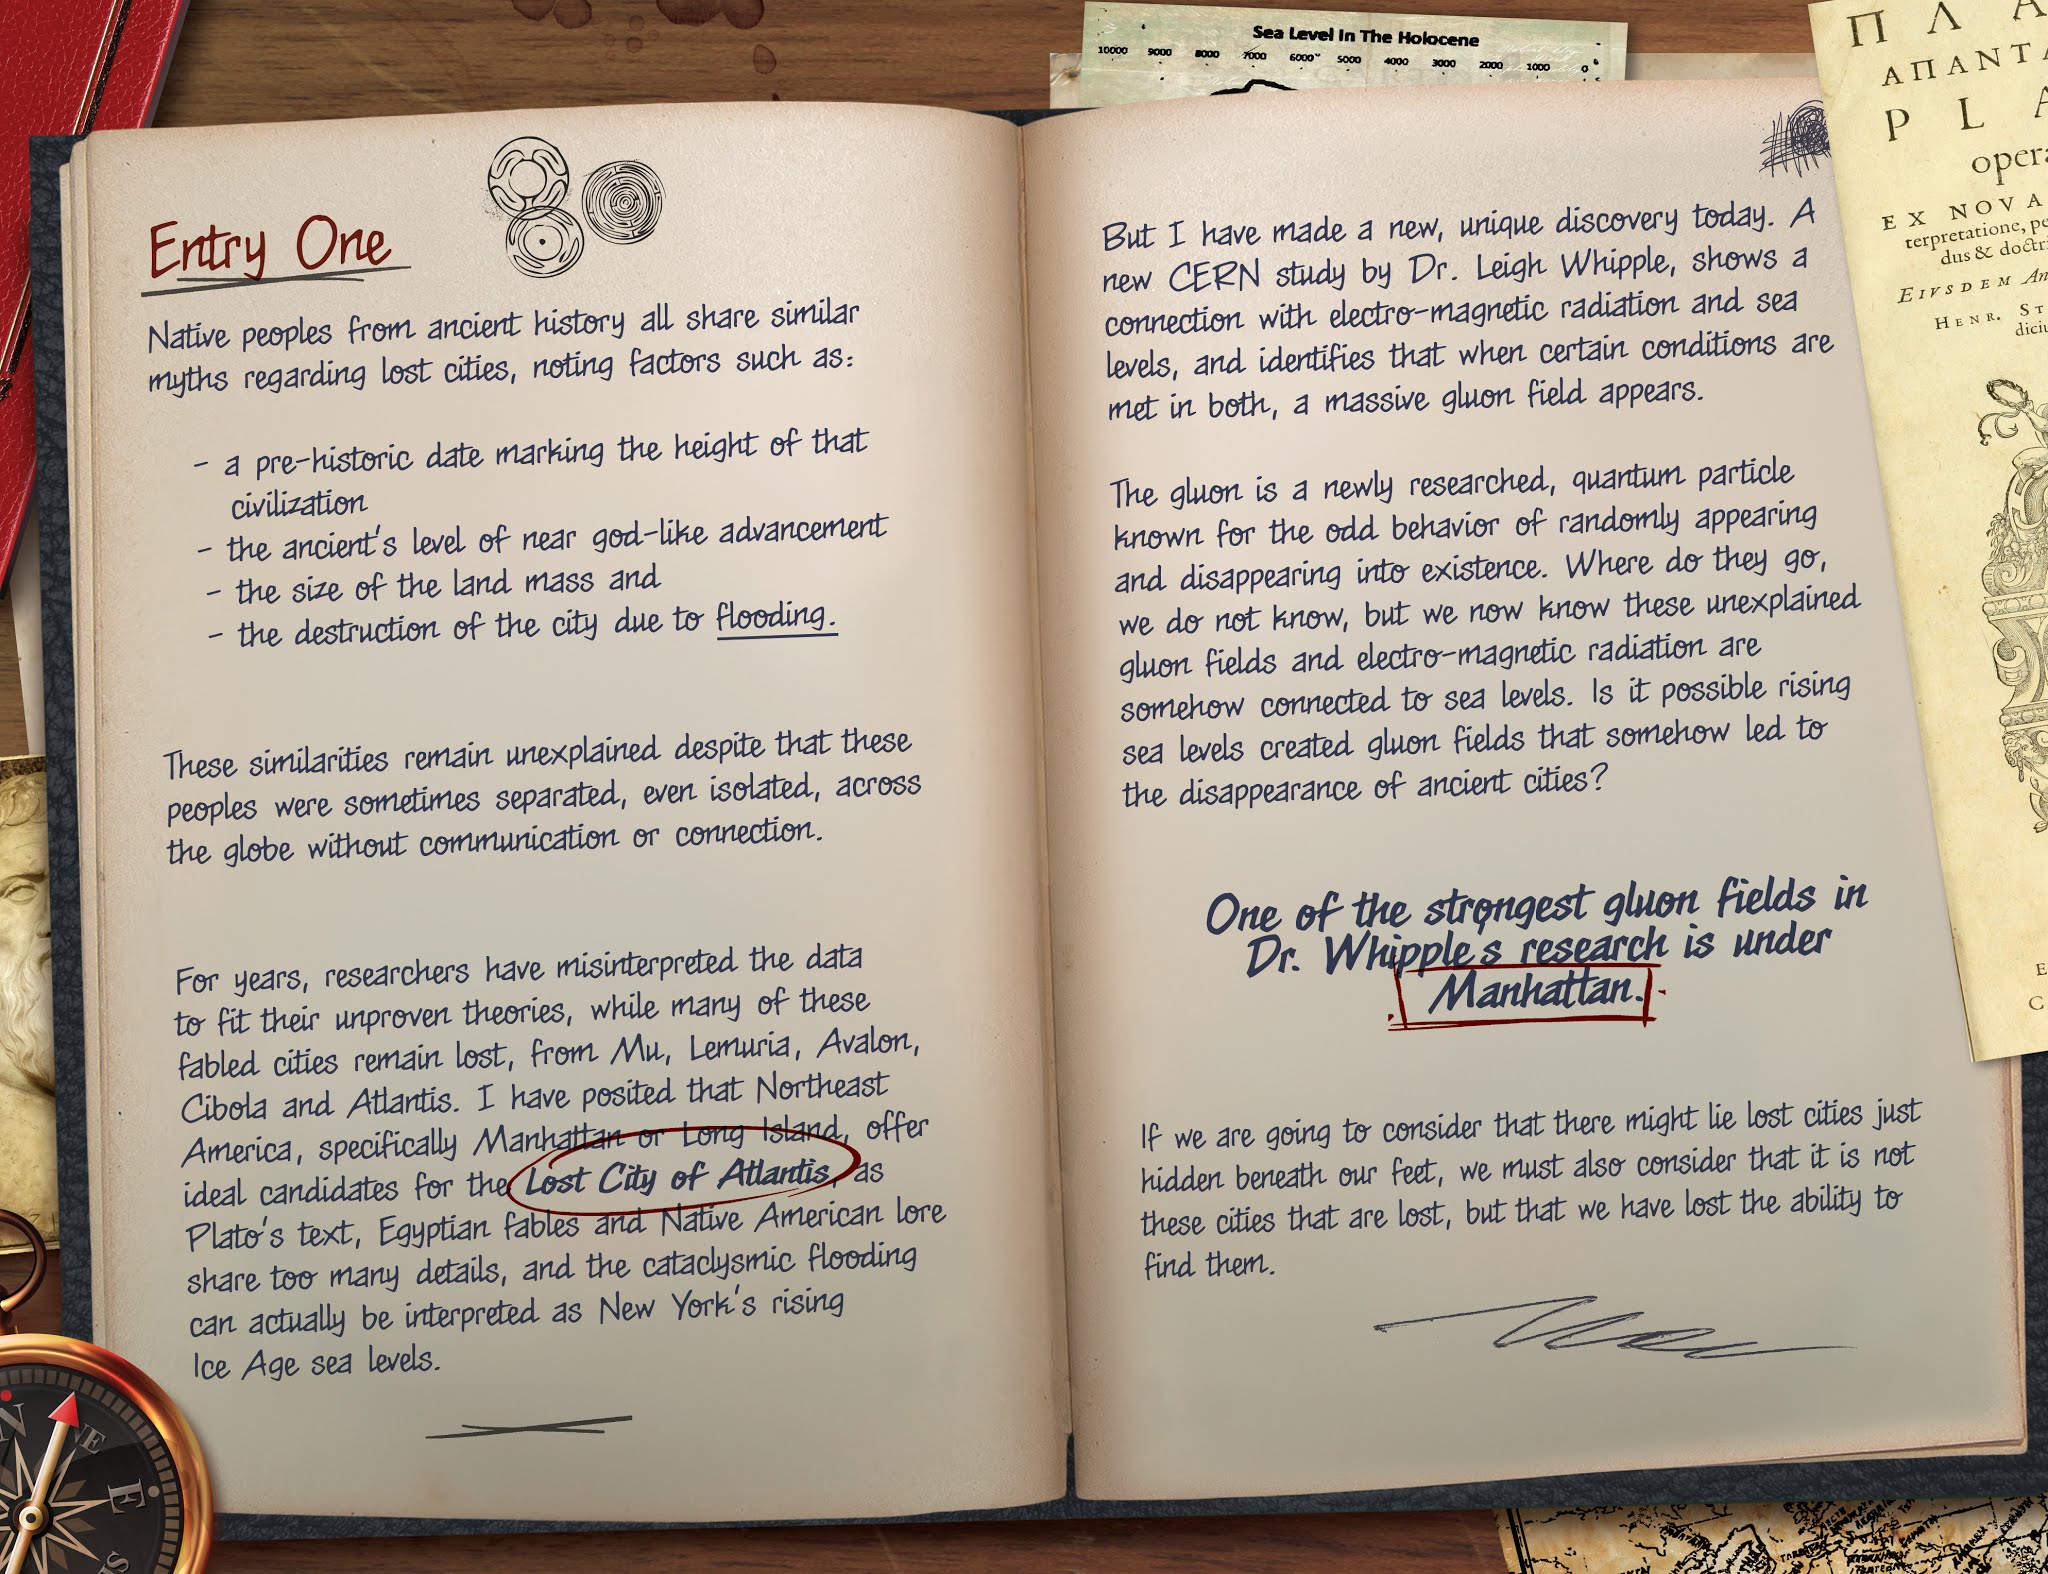 Sea Level In The Holocene
10000 9000 8000 7000 6000 5000 4000 3000 2000 1000 0
Entry One
Native peoples from ancient history all share similar
myths regarding lost cities, noting factors such as:
- a pre-historic date marking the height of that
civilization
- the ancient's level of near god-like advancement
- the size of the land mass and
- the destruction of the city due to flooding.
These similarities remain unexplained despite that these
peoples were sometimes separated, even isolated, across
the globe without communication or connection.
For years, researchers have misinterpreted the data
to fit their unproven theories, while many of these
fabled cities remain lost, from Mu, Lemuria, Avalon,
Cibola and Atlantis. I have posited that Northeast
America, specifically Manhattan or Long Island, offer
ideal candidates for the Lost City of Atlantis, as
Plato's text, Egyptian fables and Native American lore
share too many details, and the cataclysmic flooding
can actually be interpreted as New York's rising
Ice Age sea levels.
But I have made a new, unique discovery today. A
new CERN study by Dr. Leigh Whipple, shows a
connection with electro-magnetic radiation and sea
levels, and identifies that when certain conditions are
met in both, a massive gluon field appears.
The gluon is a newly researched, quantum particle
known for the odd behavior of randomly appearing
and disappearing into existence. Where do they go,
we do not know, but we now know these unexplained
gluon fields and electro-magnetic radiation are
somehow connected to sea levels. Is it possible rising
sea levels created gluon fields that somehow led to
the disappearance of ancient cities?
One of the strongest gluon fields in
Dr. Whipple's research is under
Manhattan.
If we are going to consider that there might lie lost cities just
hidden beneath our feet, we must also consider that it is not
these cities that are lost, but that we have lost the ability to
find them.
Π Λ Α
ΑΠΑΝΤΑ
P L A
opera
EX NOVA
terpretatione, pe
dus & doctri
EIVSDEM An
HENR. ST
diciu
E
C
N
E
E
S